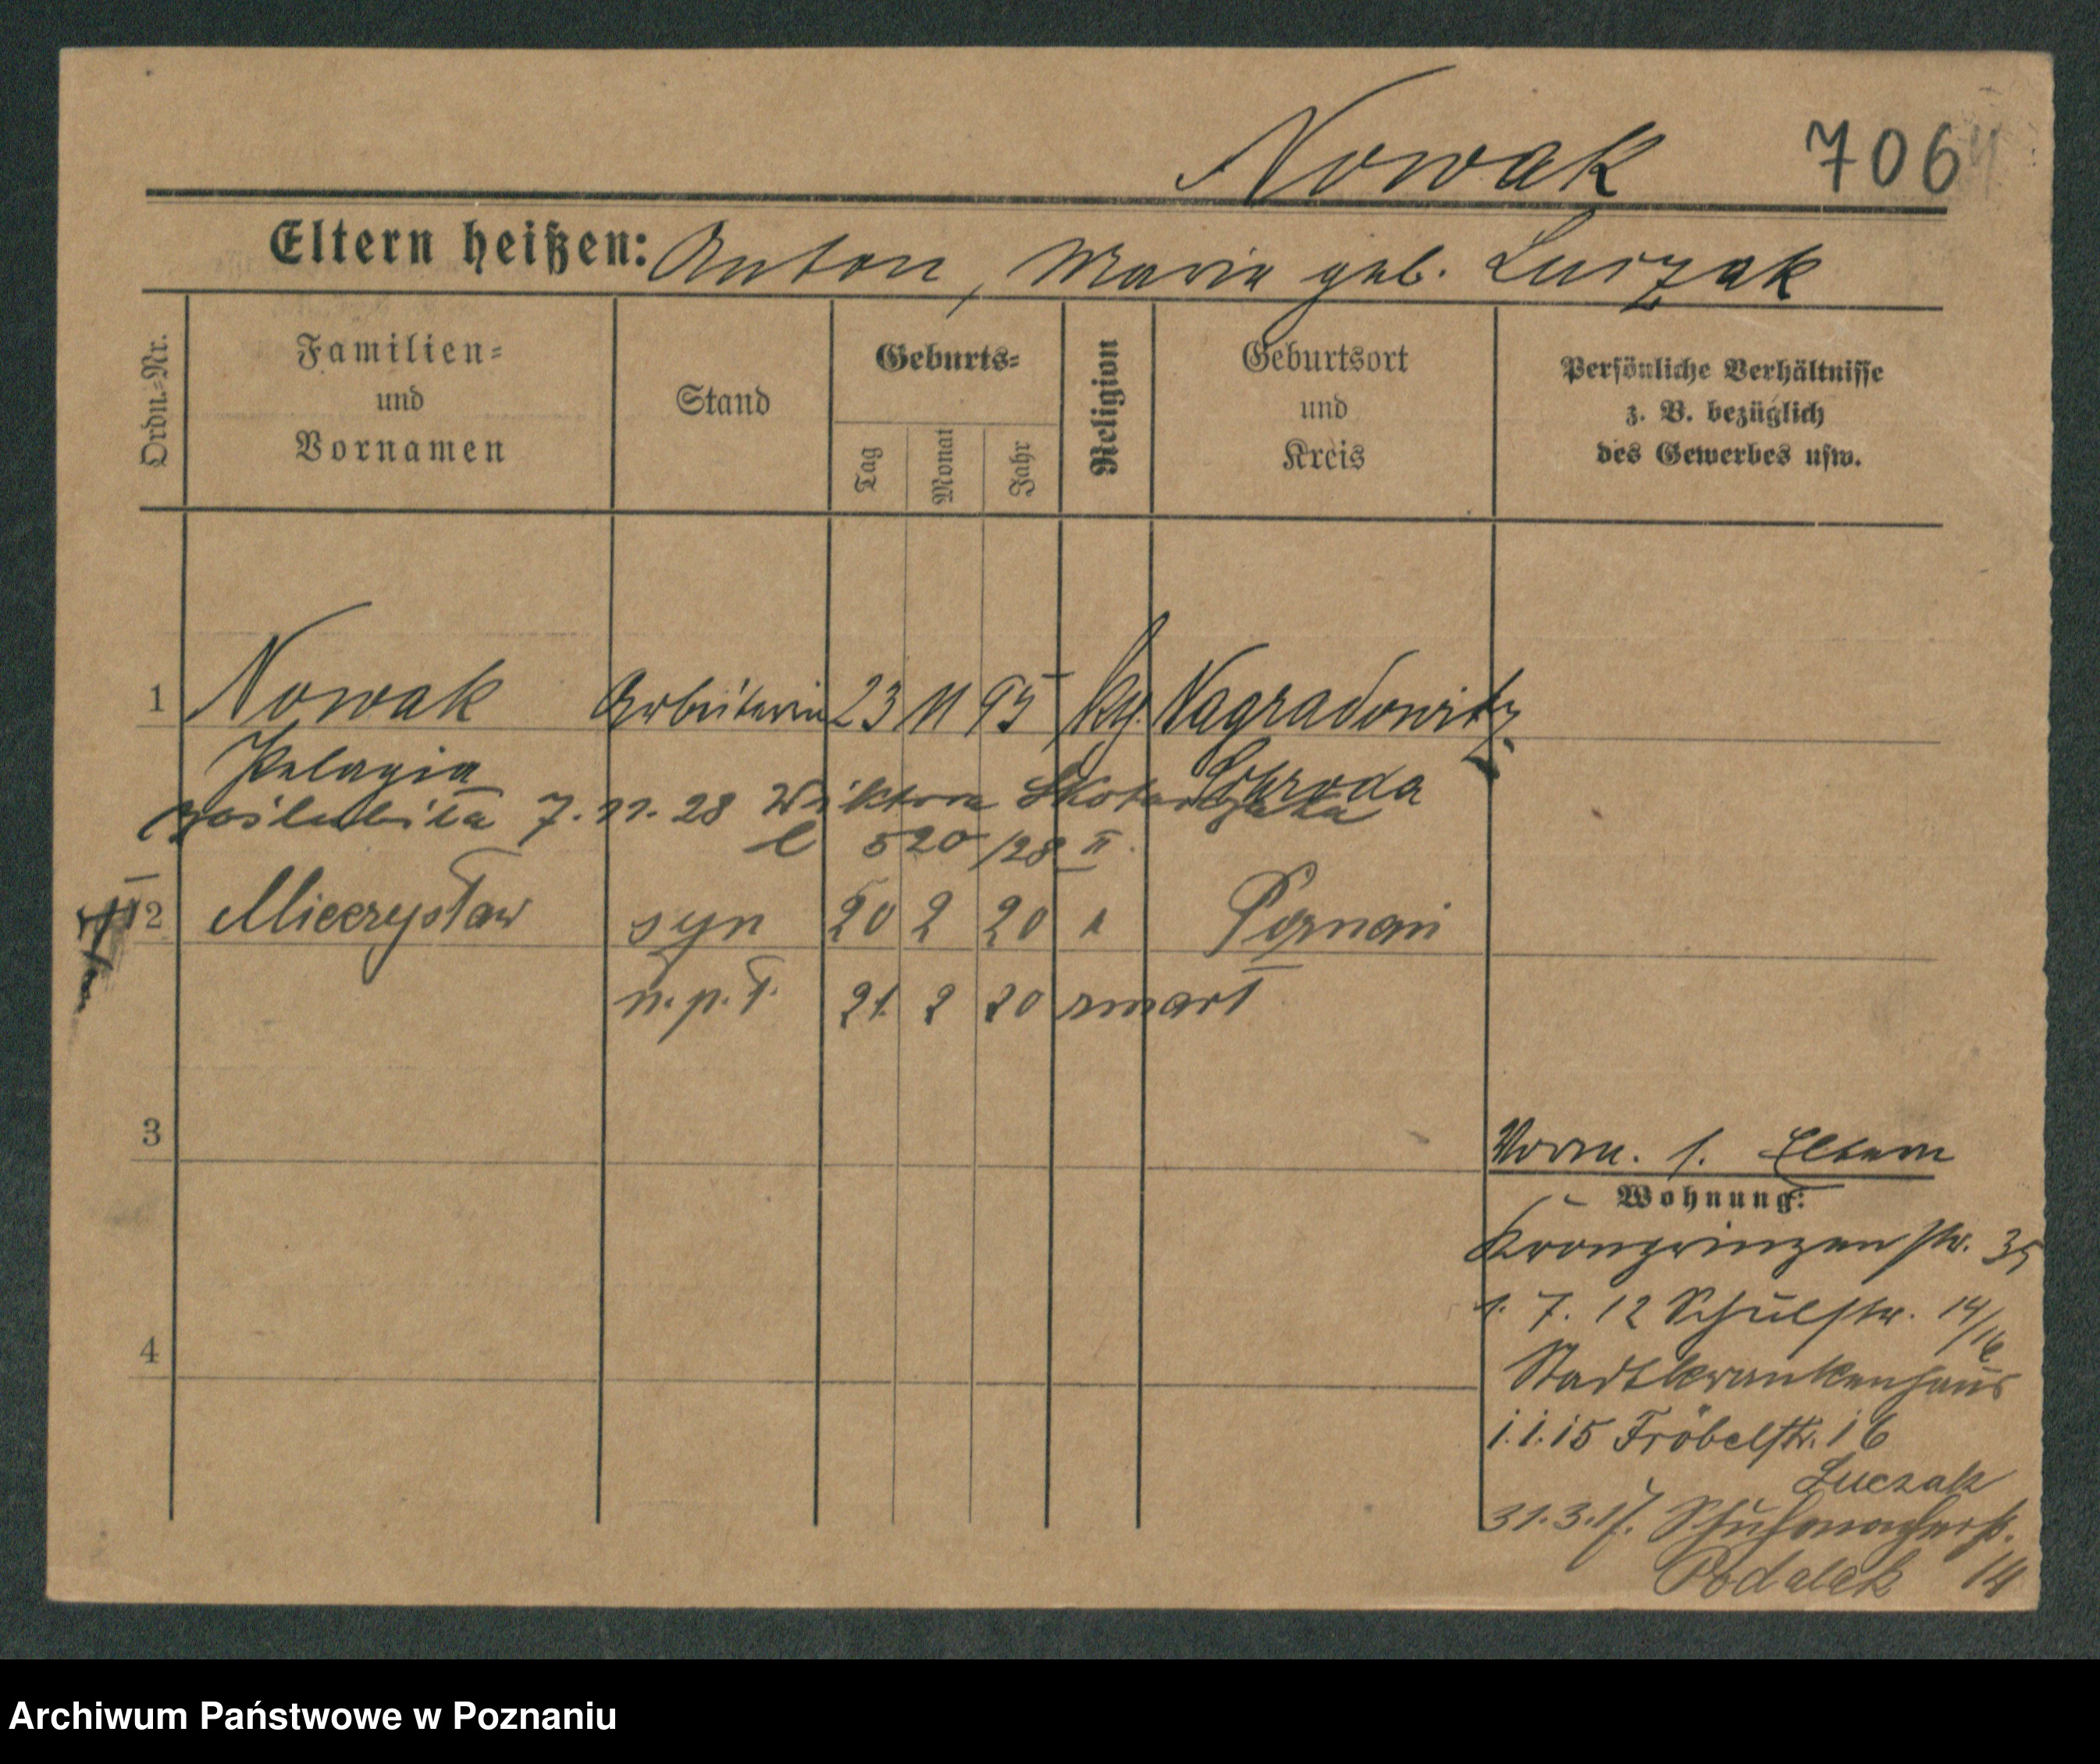 Nowak 706
Eltern heißen: Anton, Maria geb. Luczak
Ordn.-Nr.
Familien-
und
Vornamen
Stand
Geburts-
Tag
Monat
Jahr
Religion
Geburtsort
und
Kreis
Persönliche Verhältnisse
z. B. bezüglich
des Gewerbes usw.
1 Nowak Arbeiterin 23 11 95 kg. Nagradowitz
Pelagia Schroda
zaślubiła 7.11.28 Wiktora Skotarczaka
l 520/28 II.
2 Mieczysław syn 20 2 20 Poznań
n.p.ł. 21 2 20 zmarł
3
Vorm. s. Eltern
Wohnung:
Kronprinzenstr. 35
4
1. 7. 12 Schulstr. 14/16
Stadtkrankenhaus
1.1.15 Fröbelstr. 16
Luczak
31.3.17. Schuhmacherstr.
14
Archiwum Państwowe w Poznaniu